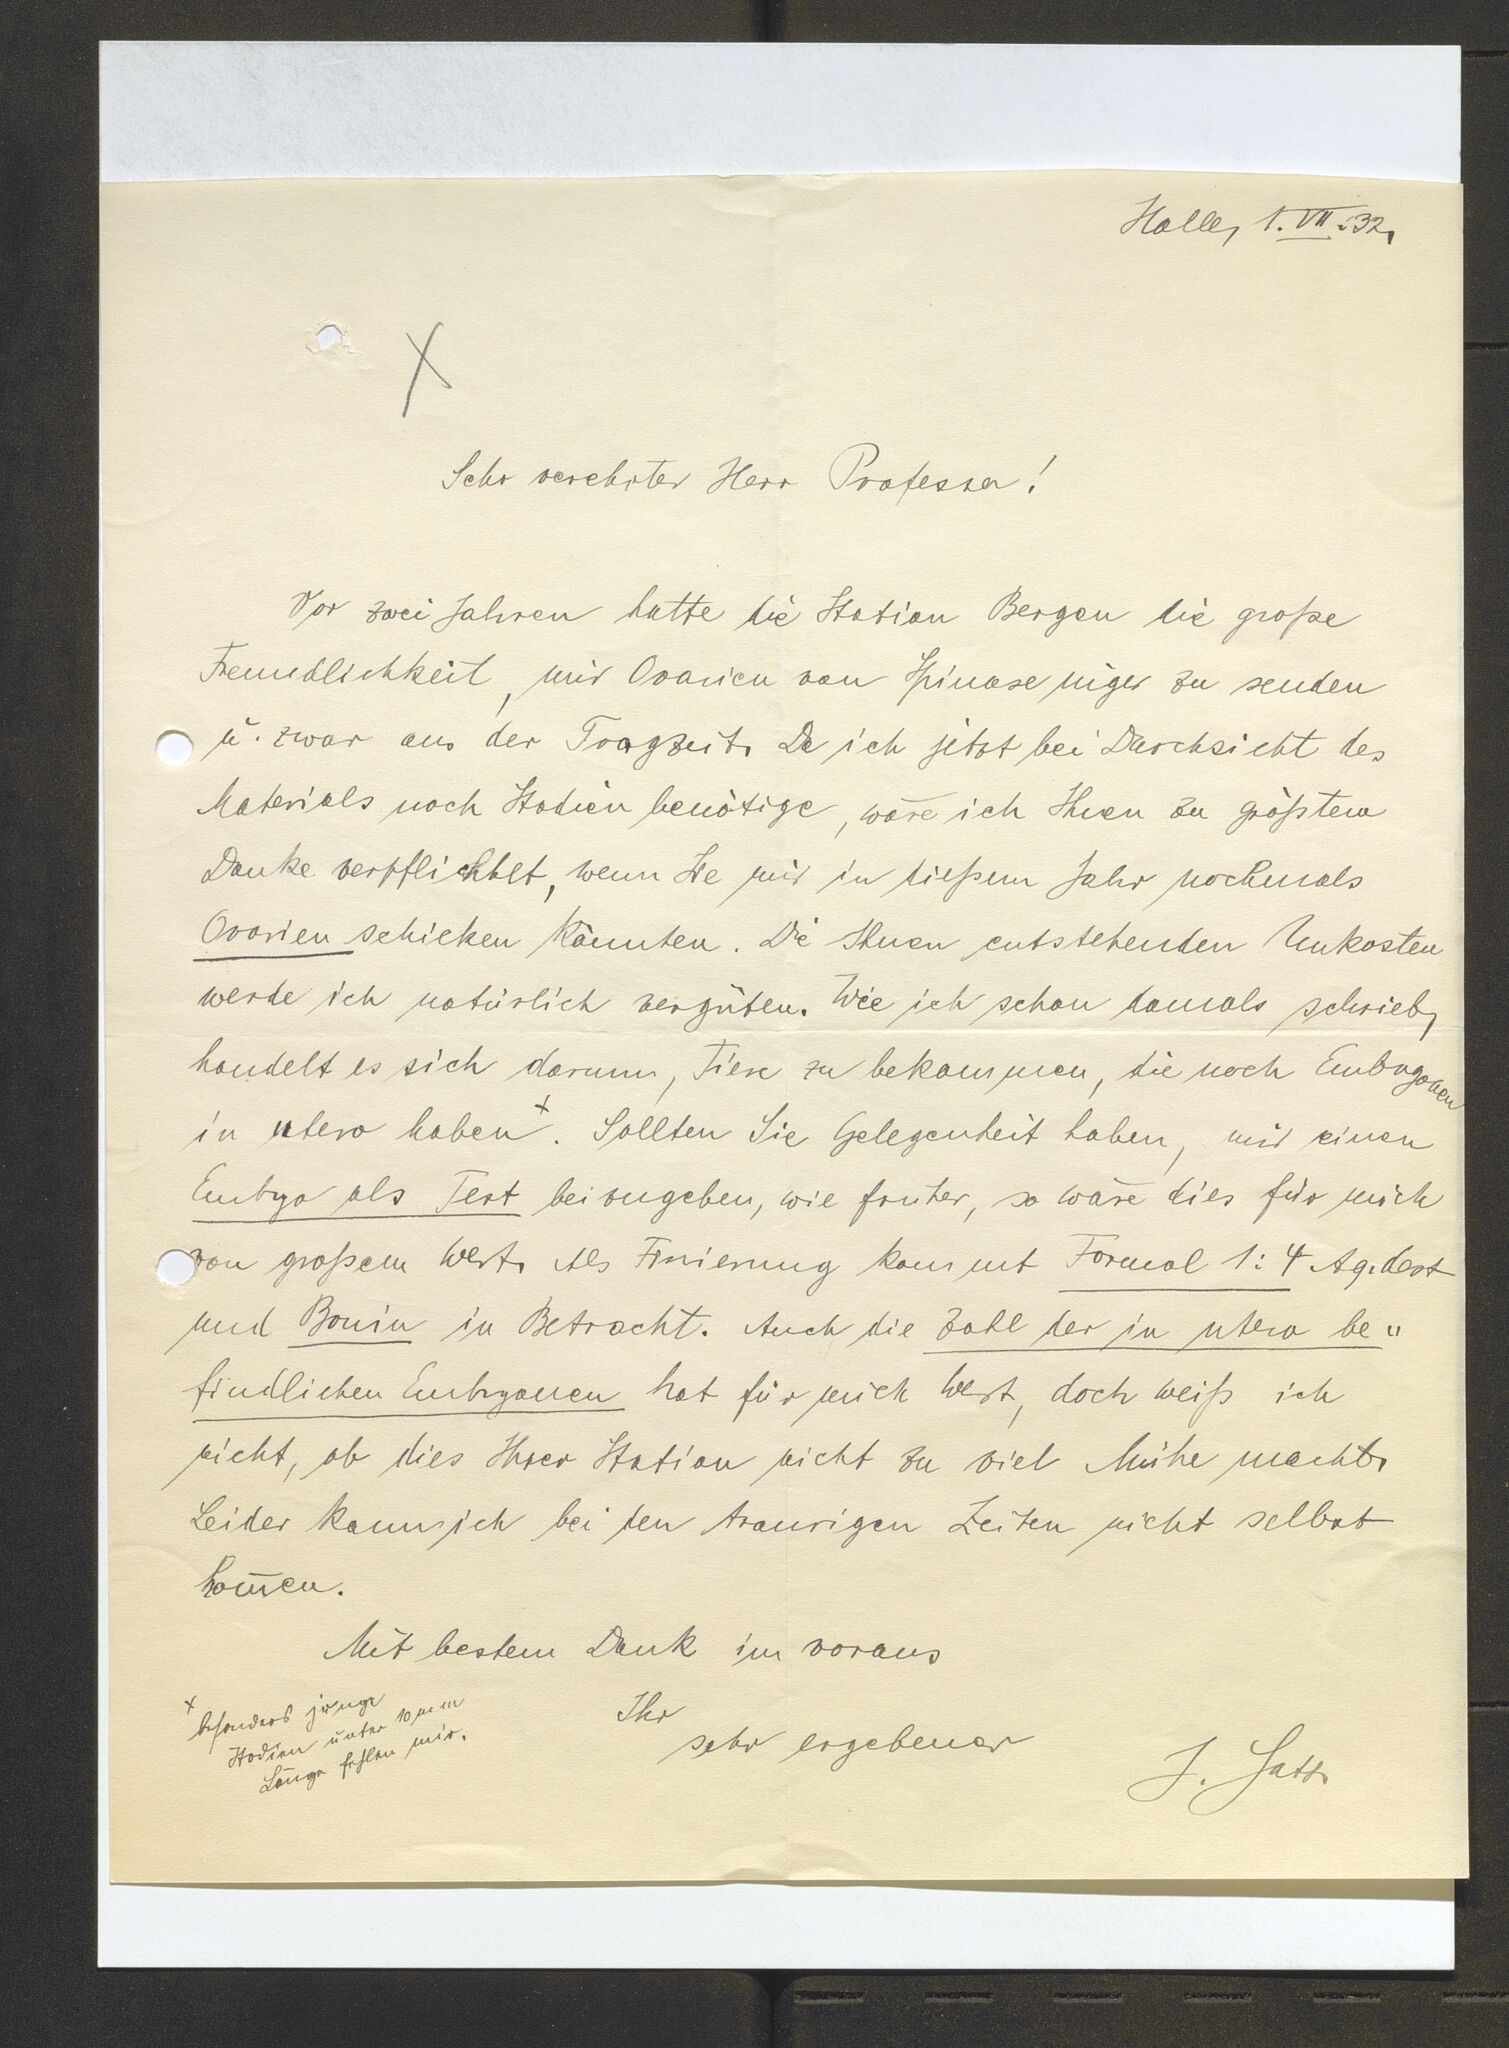 Halle, 1. VII. 32.
X
Sehr verehrter Herr Professor!
Vor zwei Jahren hatte die Station Bergen die große
Freundlichkeit, mir Ovarien von Spinax niger zu senden
u. zwar aus der Tragzeit. Da ich jetzt bei Durchsicht des
Materials noch Stadien benötige, wäre ich Ihnen zu größtem
Danke verpflichtet, wenn Sie mir in dießem Jahr nochmals
Ovarien schicken könnten. Die Ihnen entstehenden Unkosten
werde ich natürlich vergüten. Wie ich schon damals schrieb,
handelt es sich darum, Tiere zu bekommen, die noch Embryonen
in utero haben x. Sollten Sie Gelegenheit haben, mir einen
Embryo als Test beizugeben, wie früher, so wäre dies für mich
von großem Wert. Als Fixierung kommt Formol 1:4 Aq. dest
und Bouin in Betracht. Auch die Zahl der in utero be"
findlichen Embryonen hat für mich Wert, doch weiß ich
nicht, ob dies Ihrer Station nicht zu viel Mühe macht.
Leider kann ich bei den traurigen Zeiten nicht selbst
kom̅en.
Mit bestem Dank im voraus
Ihr
sehr ergebener
x besonders junge
Stadien unter 10 mm
Länge fehlen mir.